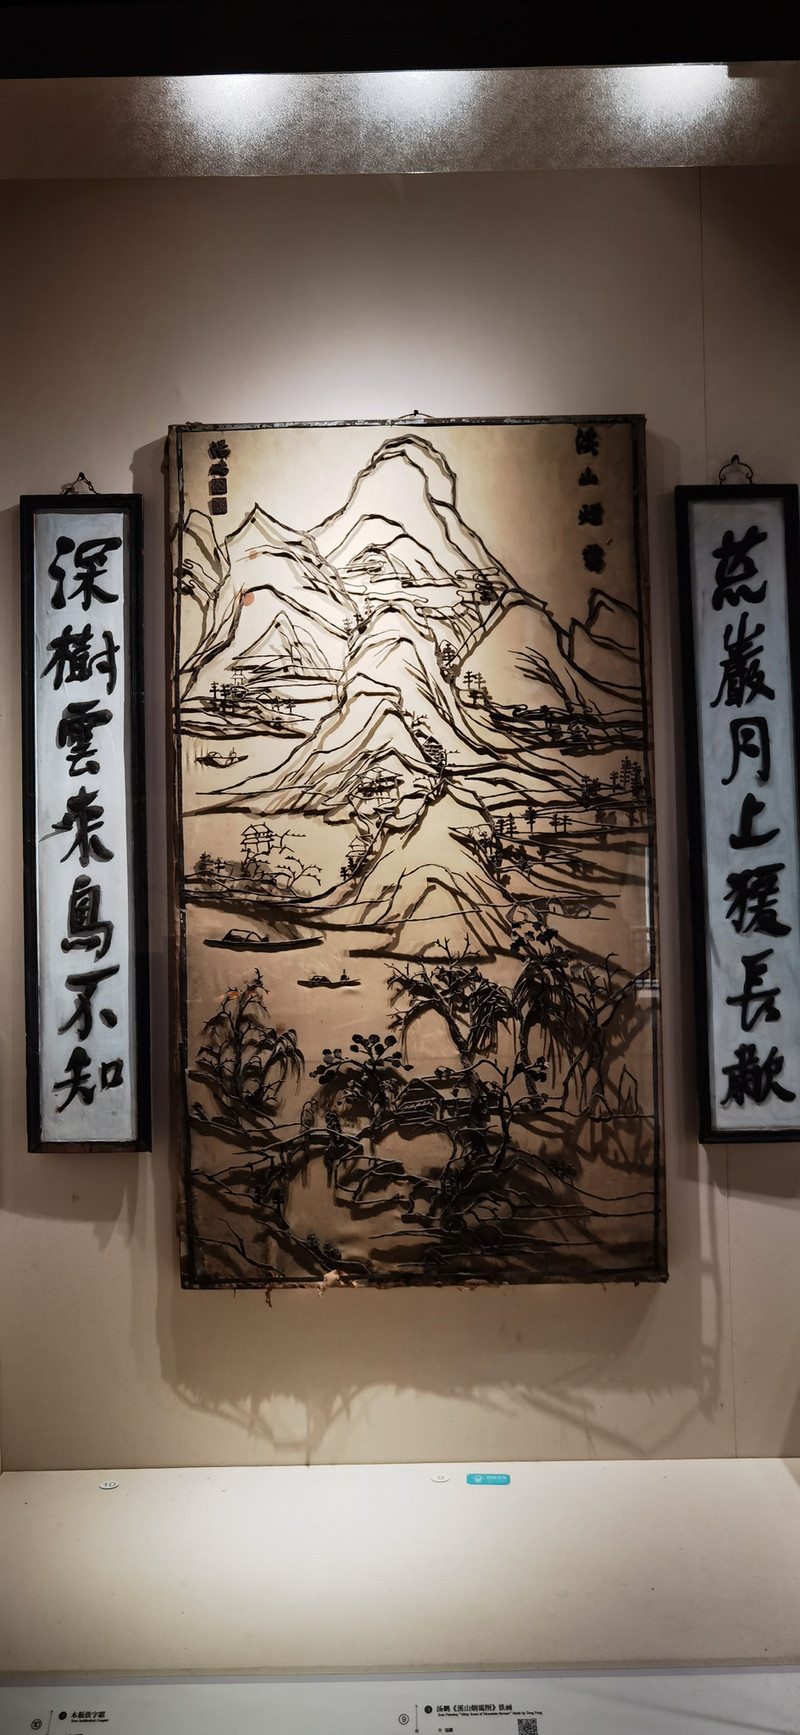 荒巖月上猨長歗
溪山
湯鵬
深樹雲來鳥不知
10
9
木板铁字联
汤鹏《溪山烟霭图》铁画